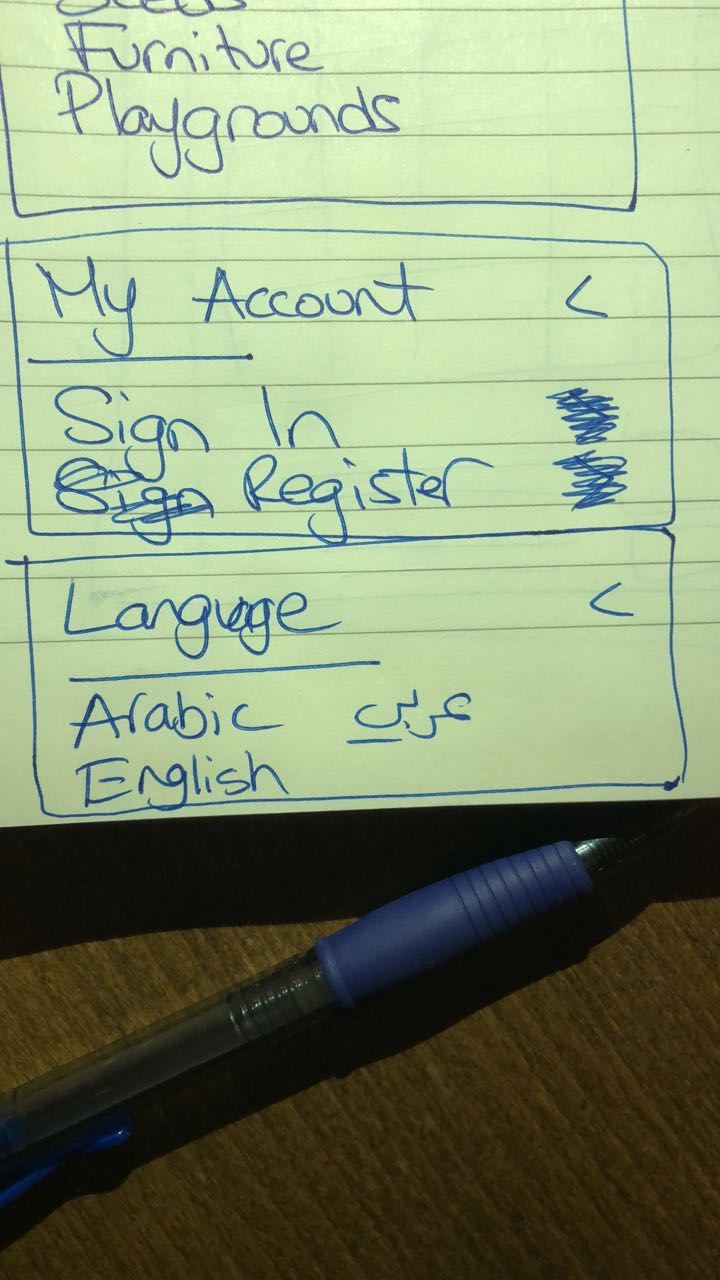 Furniture
Playgrounds
My Account <
Sign In
Register
Language <
Arabic عربي
English